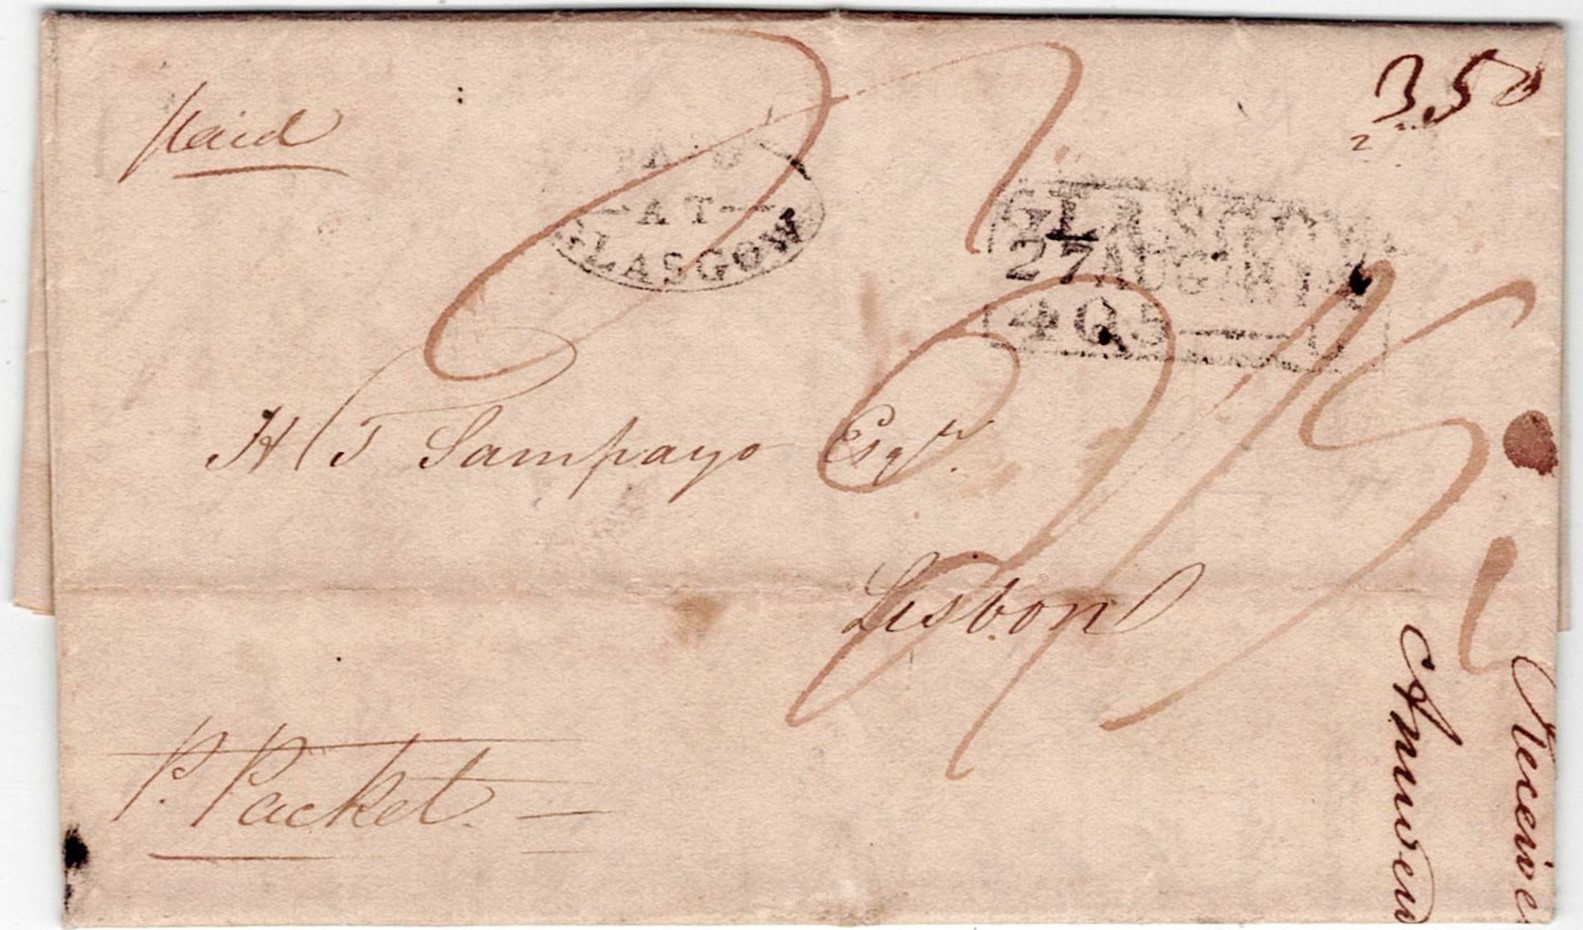 paid
350
PAID
AT
GLASGOW
GLASGOW
27 AUG
405
H T Sampayo Esqr.
Lisbon
P. Packet.
Receive
Answer